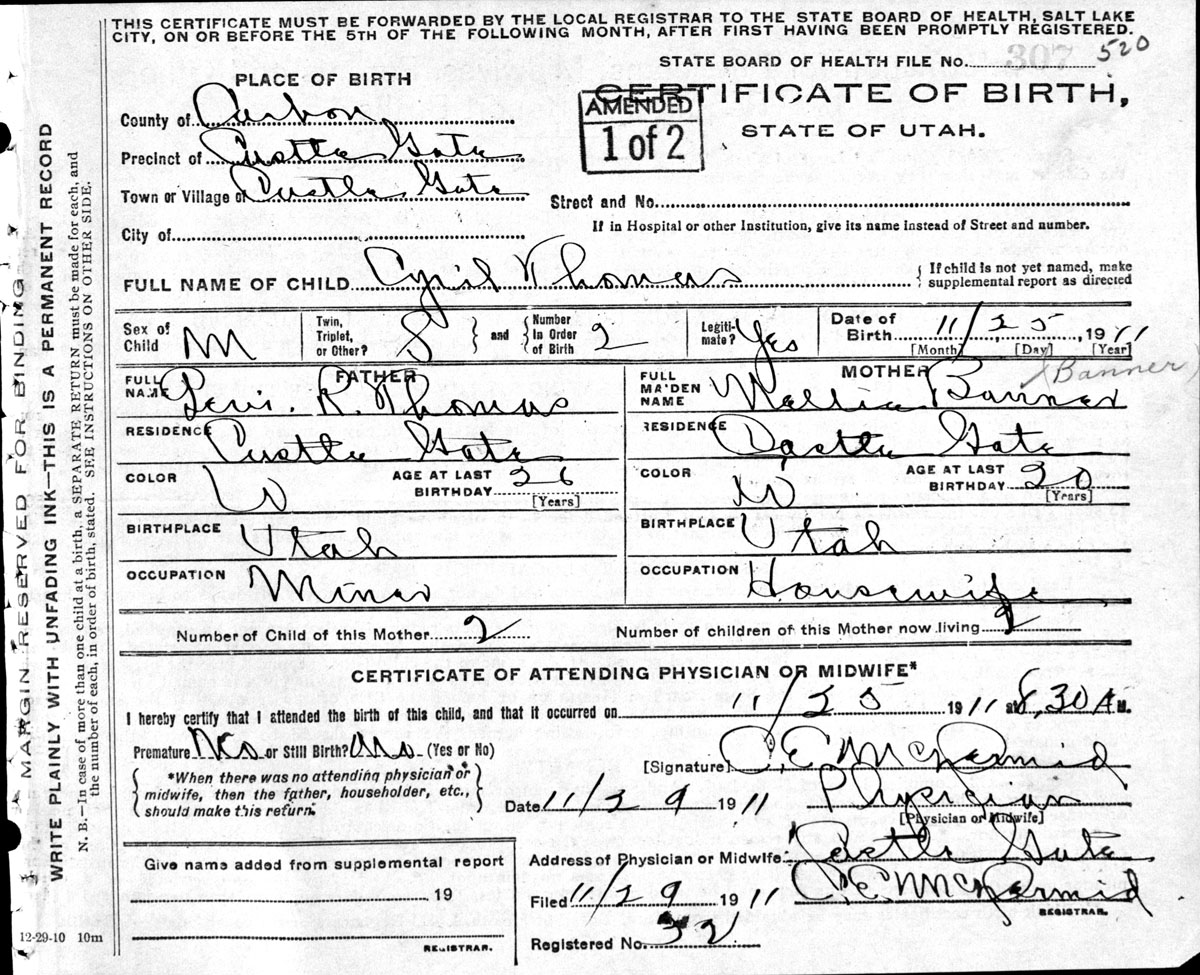 THIS CERTIFICATE MUST BE FORWARDED BY THE LOCAL REGISTRAR TO THE STATE BOARD OF HEALTH, SALT LAKE
CITY, ON OR BEFORE THE 5TH OF THE FOLLOWING MONTH, AFTER FIRST HAVING BEEN PROMPTLY REGISTERED.
STATE BOARD OF HEALTH FILE No. 307 520
PLACE OF BIRTH
CERTIFICATE OF BIRTH,
AMENDED
1 of 2
STATE OF UTAH.
County of Carbon
Precinct of Castle Gate
Town or Village of Castle Gate
Street and No.
City of
If in Hospital or other Institution, give its name instead of Street and number.
FULL NAME OF CHILD Cyril Thomas { If child is not yet named, make supplemental report as directed
Sex of Child M
Twin, Triplet, or Other? S } and { Number In Order of Birth 2
Legitimate? Yes
Date of Birth 11/25, 1911
[Month] [Day] [Year]
FATHER
FULL NAME Levi. R. Thomas
MOTHER
FULL MAIDEN NAME Nellie Banner
(Banner)
RESIDENCE Castle Gate
RESIDENCE Castle Gate
COLOR W
AGE AT LAST BIRTHDAY 26 [Years]
COLOR W
AGE AT LAST BIRTHDAY 20 [Years]
BIRTHPLACE Utah
BIRTHPLACE Utah
OCCUPATION Miner
OCCUPATION Housewife
Number of Child of this Mother 2
Number of children of this Mother now living 2
CERTIFICATE OF ATTENDING PHYSICIAN OR MIDWIFE*
I hereby certify that I attended the birth of this child, and that it occurred on 11/25 1911 at 8,30 A M.
Premature or Still Birth? (Yes or No)
[Signature] C. E. McDermid
{ *When there was no attending physician or midwife, then the father, householder, etc., should make this return. }
Date 11/29 1911 Physician
[Physician or Midwife]
Give name added from supplemental report
19
REGISTRAR.
Address of Physician or Midwife: Castle Gate
Filed 11/29 1911 C. E. McDermid
REGISTRAR.
Registered No. 32
12-29-10 10m
MARGIN RESERVED FOR BINDING
WRITE PLAINLY WITH UNFADING INK—THIS IS A PERMANENT RECORD
N. B.—In case of more than one child at a birth, a SEPARATE RETURN must be made for each, and
the number of each, in order of birth, stated. SEE INSTRUCTIONS ON OTHER SIDE.